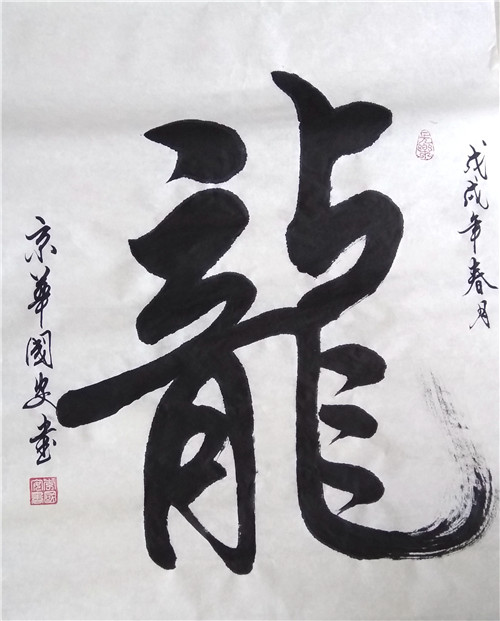 戊戌年春月
龍
京華國安書